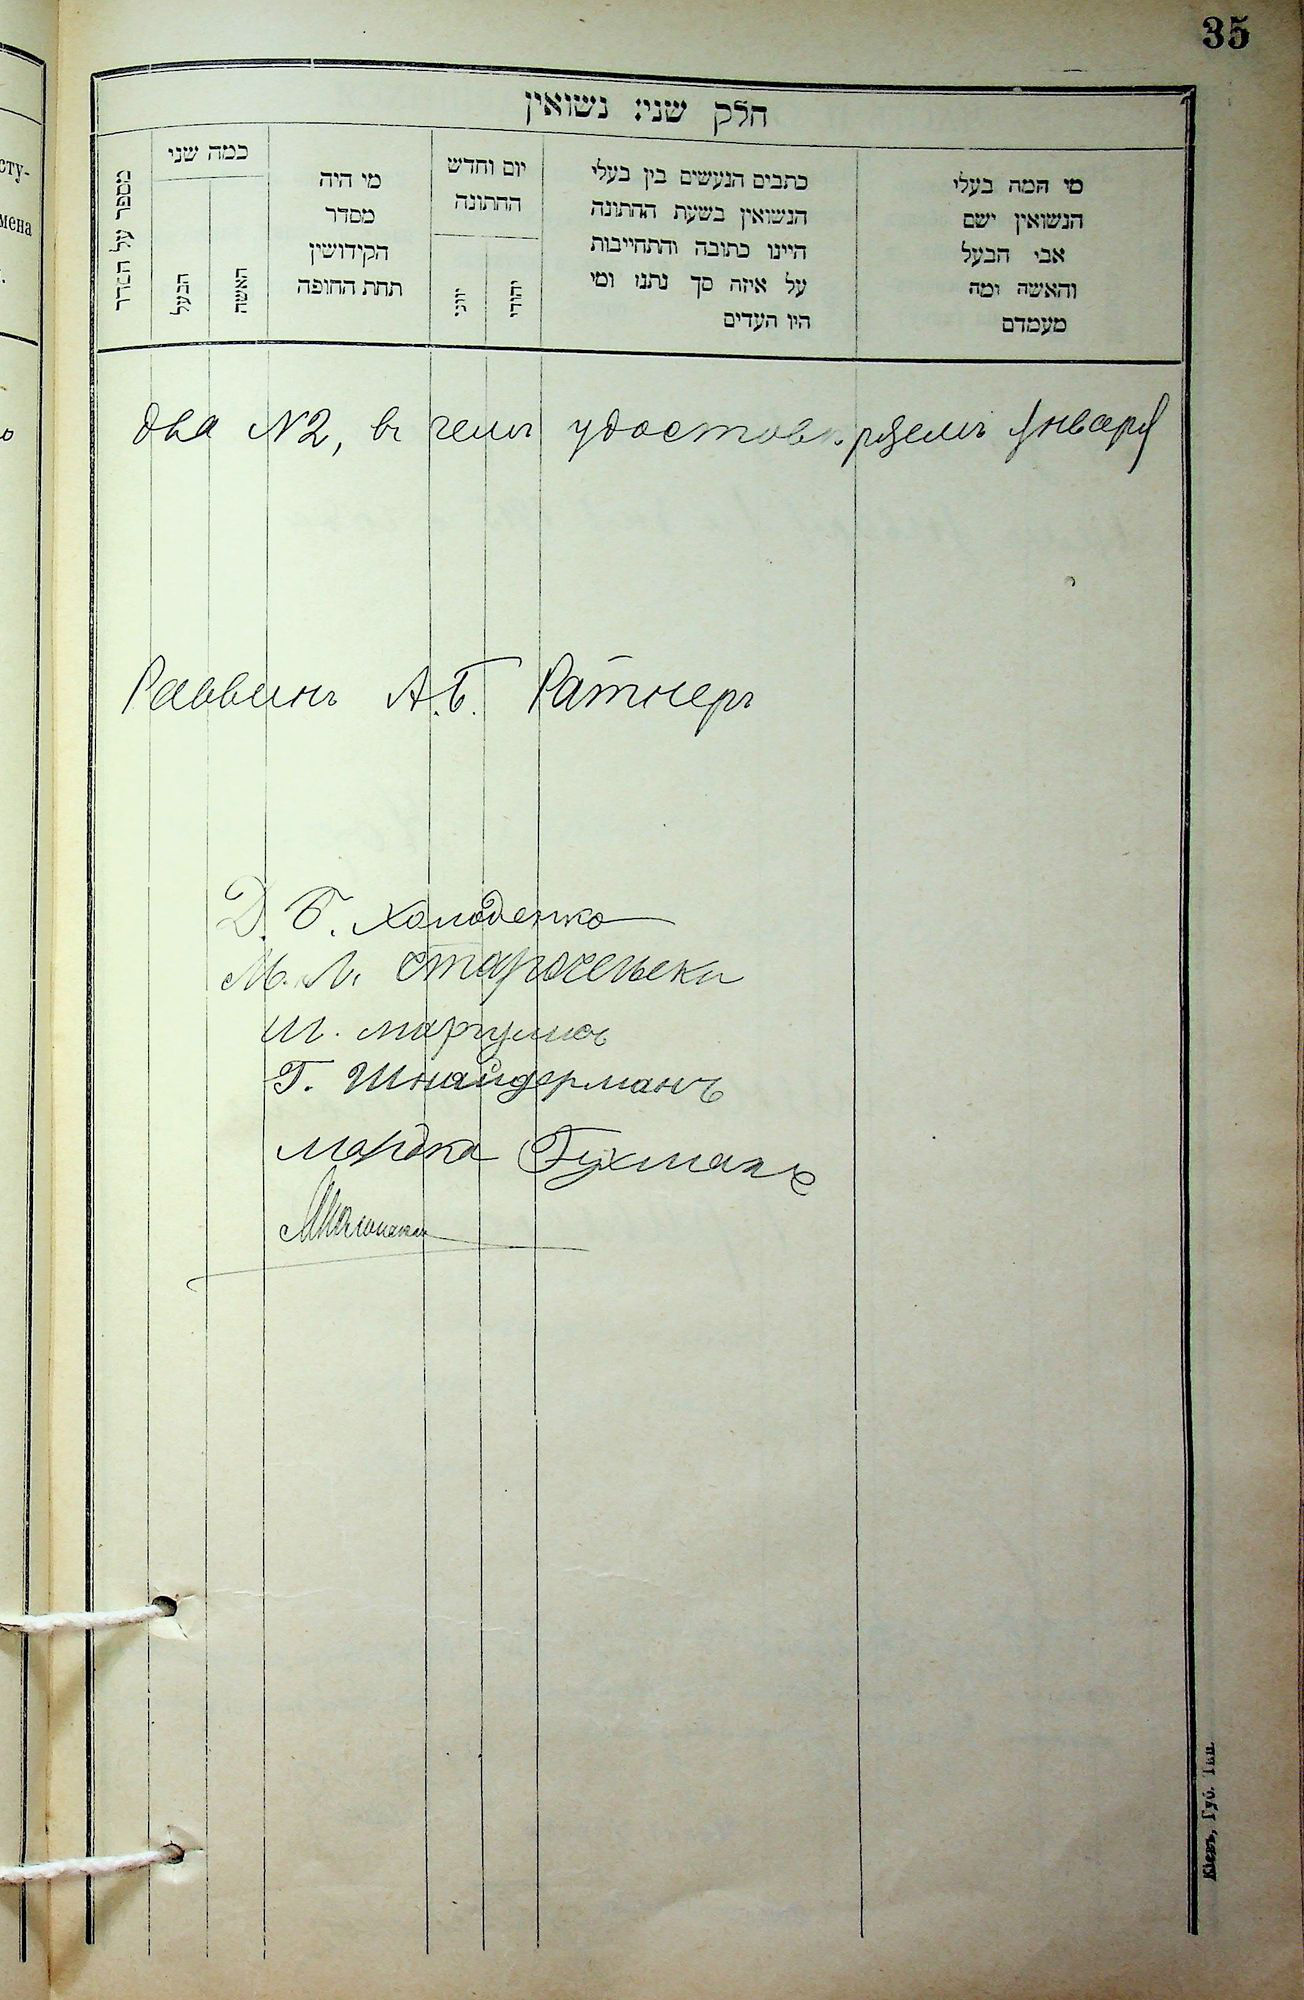 35
חלק שני׃ נשואין
מי המה בעלי
הנשואין ושם
אבי הבעל
והאשה ומה
מעמדם
כתבים הנעשים בין בעלי
הנשואין בשעת החתונה
היינו כתובה והתחייבות
על איזה סך נתנו ומי
היו העדים
יום וחדש
החתונה
יהודי
יווני
מי היה
מסדר
הקידושין
תחת החופה
כמה שני
האשה
הבעל
מספר על הסדר
два N2, въ чемъ удостовѣряемъ Января
Раввинъ А.Б. Ратнеръ
Д. Б. Холоденко
М. Л. Старосельски
Ш. Маргулисъ
Г. Шнайдерманъ
Мордка Гухманъ
Кіевъ, Губ. Тип.
сту-
мена